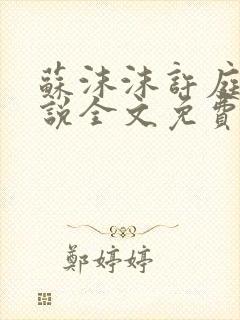 蘇沫沫許庭
說全文免費
鄭婷婷